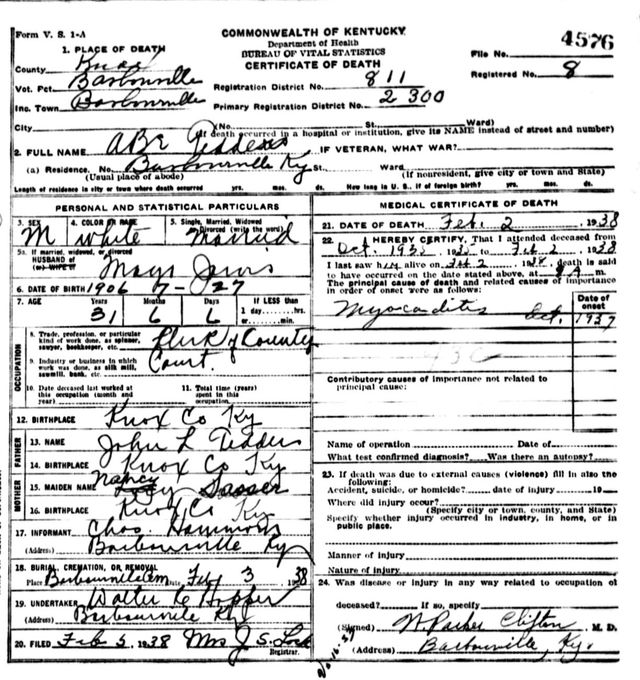 Form V. S. 1-A
COMMONWEALTH OF KENTUCKY
Department of Health
BUREAU OF VITAL STATISTICS
CERTIFICATE OF DEATH
4576
File No.
Registered No. 8
1. PLACE OF DEATH
County Knox
Vot. Pct. Barbourville
Inc. Town Barbourville
Registration District No. 811
Primary Registration District No. 2300
City (No. St. Ward)
(If death occurred in a hospital or institution, give its NAME instead of street and number)
2. FULL NAME Abe Tedders IF VETERAN, WHAT WAR?
(a) Residence. No. Barbourville Ky St. Ward
(Usual place of abode) (If nonresident, give city or town and State)
Length of residence in city or town where death occurred yrs. mos. ds. How long in U. S., if of foreign birth? yrs. mos. ds.
PERSONAL AND STATISTICAL PARTICULARS
3. SEX 4. COLOR OR RACE 5. Single, Married, Widowed
Divorced (write the word)
M white Married
5a. If married, widowed, or divorced
HUSBAND of
(or) WIFE of
6. DATE OF BIRTH 1906 7-27
7. AGE Years Months Days If LESS than
1 day hrs.
or min.
31 6 6
OCCUPATION
8. Trade, profession, or particular
kind of work done, as spinner,
sawyer, bookkeeper, etc.
Clerk of County
9. Industry or business in which
work was done, as silk mill,
sawmill, bank, etc.
Court.
10. Date deceased last worked at
this occupation (month and
year)
11. Total time (years)
spent in this
occupation
12. BIRTHPLACE Knox Co Ky
FATHER
13. NAME John L Tedders
14. BIRTHPLACE Knox Co Ky
MOTHER
15. MAIDEN NAME Nancy Sasser
16. BIRTHPLACE Knox Co Ky
17. INFORMANT Chas. Hammons
(Address) Barbourville Ky
18. BURIAL, CREMATION, OR REMOVAL
Place Barbourville Cem Date Feb 3 1938
19. UNDERTAKER Walter C Hopper
(Address) Barbourville Ky
20. FILED Feb 5, 1938 Mrs J S Lock
Registrar.
MEDICAL CERTIFICATE OF DEATH
21. DATE OF DEATH Feb. 2 1938
22. I HEREBY CERTIFY, That I attended deceased from
Oct. 193 to Feb 2 1938
I last saw him alive on Feb 2 1938, death is said
to have occurred on the date stated above, at m.
The principal cause of death and related causes of importance
in order of onset were as follows:
Date of
onset
Myocarditis Oct. 1937
93C
Contributory causes of importance not related to
principal cause:
Name of operation Date of
What test confirmed diagnosis? Was there an autopsy?
23. If death was due to external causes (violence) fill in also the
following:
Accident, suicide, or homicide? date of injury 19
Where did injury occur?
(Specify city or town, county, and State)
Specify whether injury occurred in industry, in home, or in
public place.
Manner of injury
Nature of injury
24. Was disease or injury in any way related to occupation of
deceased? If so, specify
(Signed) Parker Clifton M. D.
(Address) Barbourville, Ky.